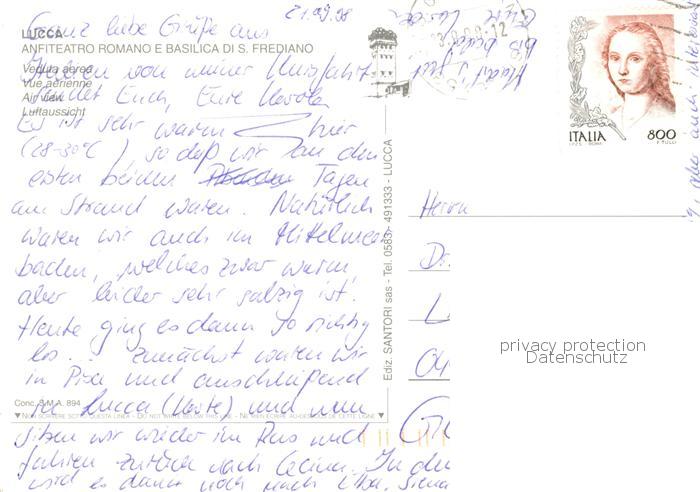 21.09.98
Ganz liebe Grüße aus
LUCCA
ANFITEATRO ROMANO E BASILICA DI S. FREDIANO
Italien von meiner Kursfahrt
Veduta aerea
Vue aérienne
Air view
Luftaussicht
sendet Euch, Eure
Es ist sehr warm hier
(28-30°C), so daß wir an den
ersten beiden Tagen
am Strand waren. Natürlich
waren wir auch im Mittelmeer
baden, welches zwar warm,
aber leider sehr salzig ist.
Heute ging es dann so richtig
los... Zunächst waren wir
in Pisa und anschließend
in Lucca (Karte) und nun
Conc. S.M.A. 894
NON SCRIVERE SOTTO QUESTA LINEA - DO NOT WRITE BELOW THIS LINE - NE RIEN ECRIRE AU-DESSOUS DE CETTE LIGNE
sitzen wir wieder im Bus und
fahren zurück nach Cecina. In der
wird es dann noch nach Elba, Siena
Ediz. SANTORI sas - Tel. 0583/ 491333 - LUCCA
ITALIA 800
Herrn
Dr.
L
04
privacy protection
Datenschutz